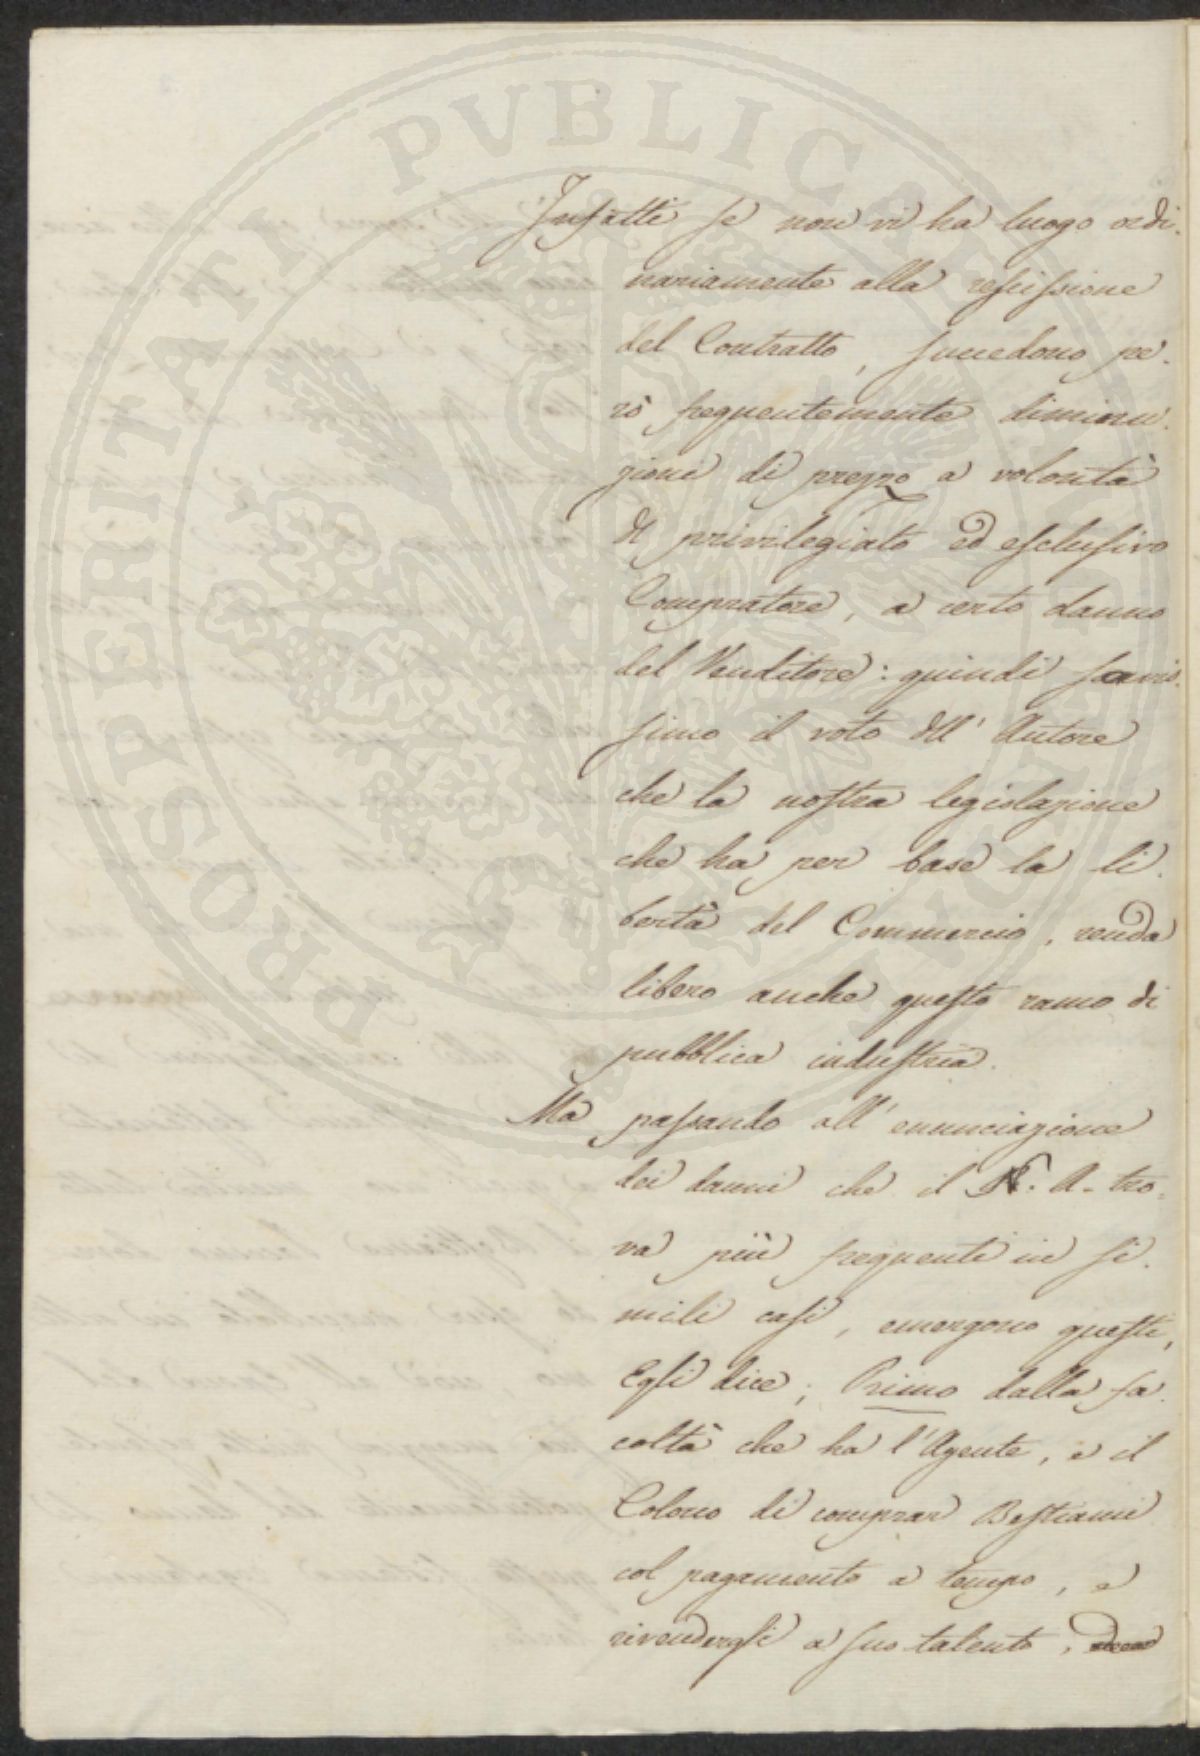 Infatti se non vi ha luogo ordi-
nariamente alla rescissione
del Contratto, succedono pe-
rò frequentemente diminu-
zioni di prezzo a volontà
del privilegiato ed esclusivo
Compratore, a certo danno
del Venditore: quindi savis-
simo il voto dell' Autore
che la nostra legislazione
che ha per base la li-
bertà del Commercio, renda
libero anche questo ramo di
pubblica industria.
Ma passando all' enunciazione
dei danni che il N. A. tro-
va più frequenti in si-
mili casi, emergono questi,
Egli dice; Primo dalla fa-
coltà che ha l'Agente, e il
Colono di comprar Bestiami
col pagamento a tempo, e
rivendergli a suo talento,
PROSPERITATI PUBLICAE